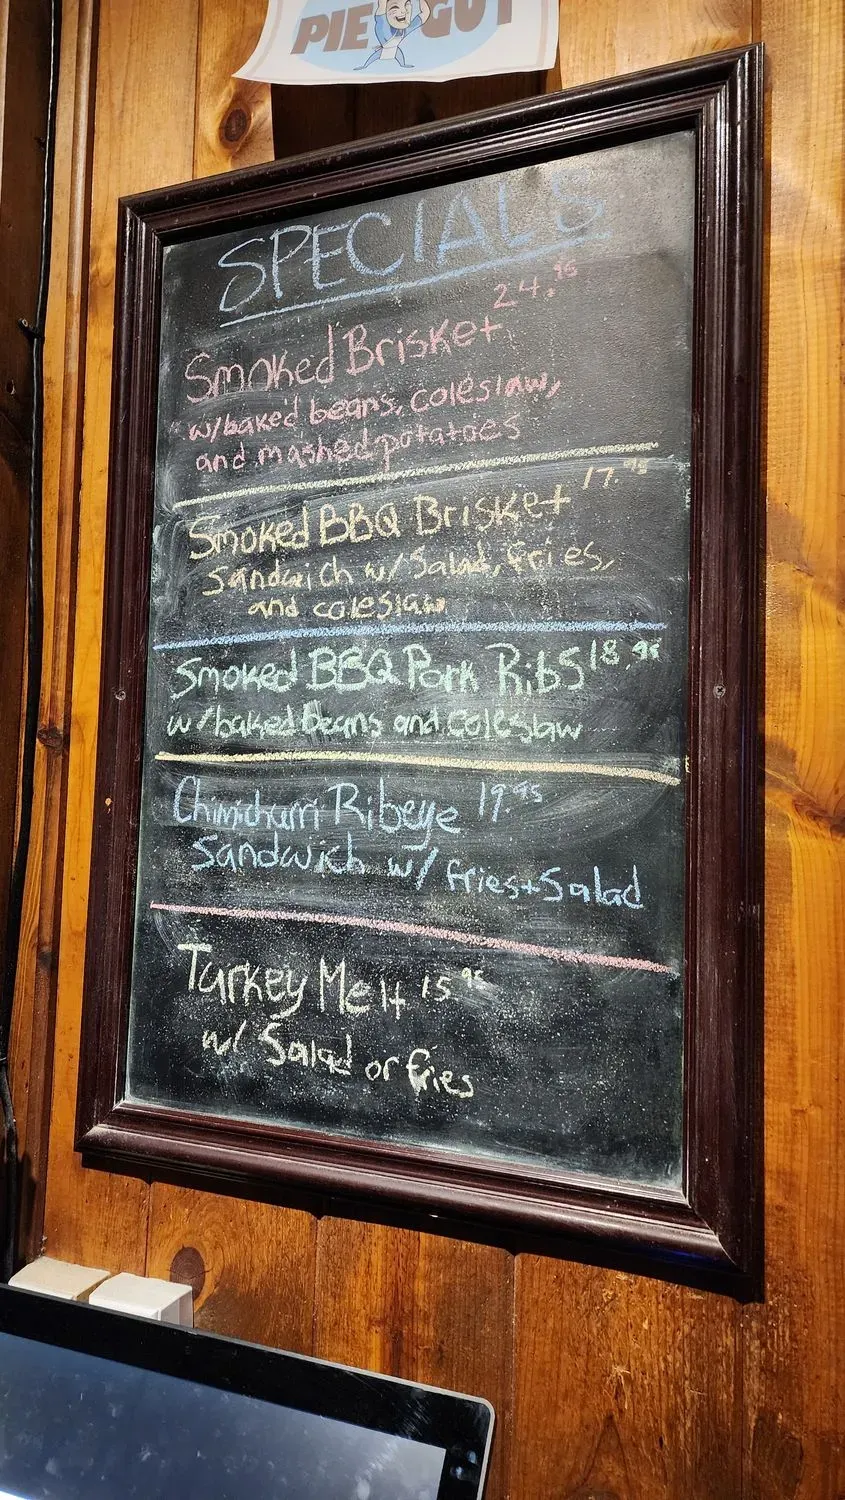 PIE GUY
SPECIALS
24.95
Smoked Brisket
w/baked beans, coleslaw,
and mashed potatoes
Smoked BBQ Brisket 17.95
Sandwich w/ Salad, fries,
and coleslaw
Smoked BBQ Pork Ribs 18.95
w/baked beans and coleslaw
Chimichurri Ribeye 19.95
Sandwich w/ fries + Salad
Turkey Melt 15.95
w/ Salad or fries